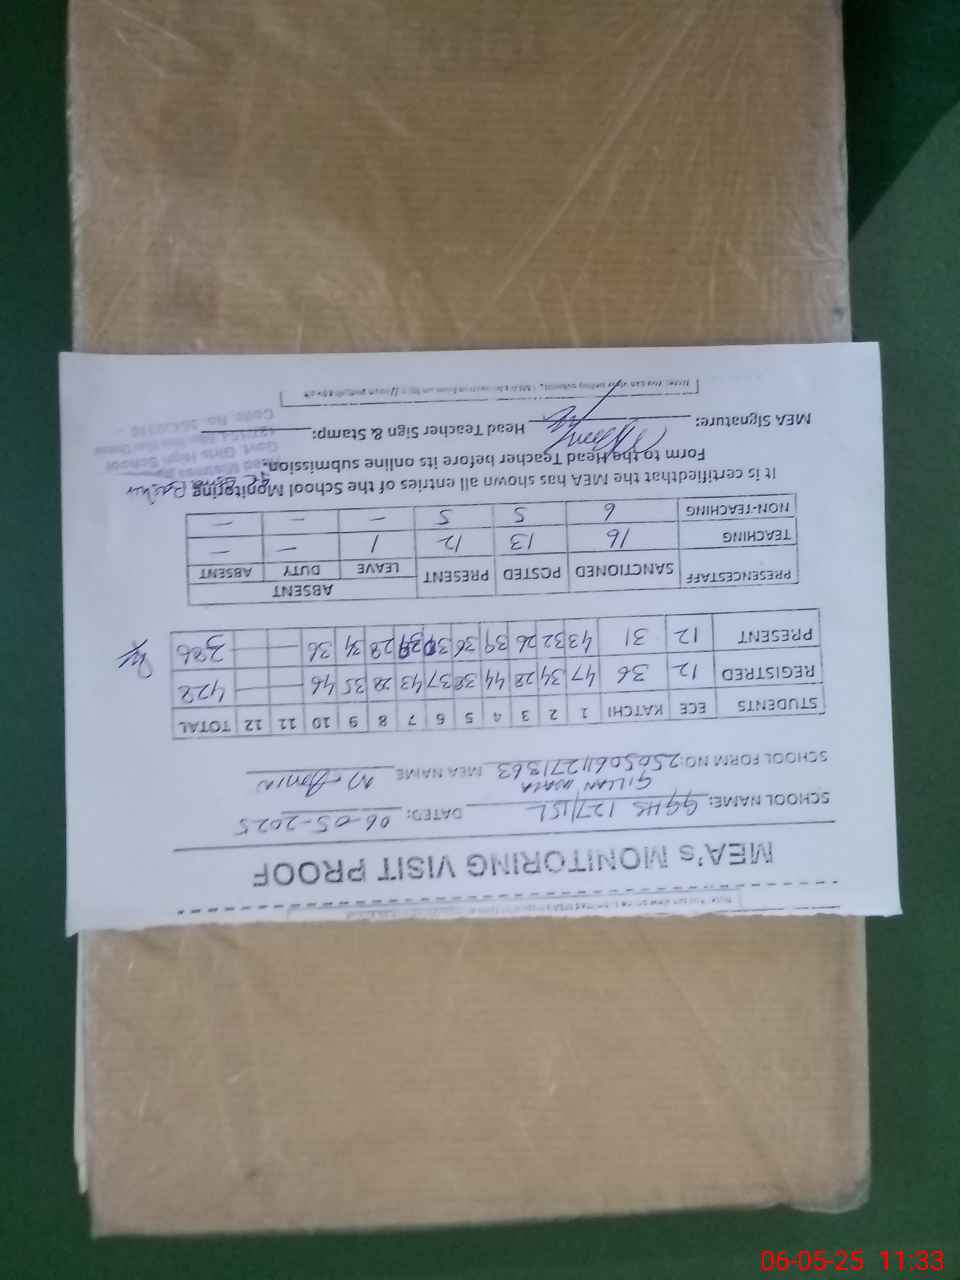 MEA's MONITORING VISIT PROOF
SCHOOL NAME: GGHS 127/15L DATED: 06-05-2025
GILLAN WALA
SCHOOL FORM NO: 25050611271363 MEA NAME M. Amin
STUDENTS ECE KATCHI 1 2 3 4 5 6 7 8 9 10 11 12 TOTAL
REGISTRED 12 36 47 34 28 44 38 37 43 28 35 46 — — 428
PRESENT 12 31 43 32 26 39 36 28 34 36 — — 386
PRESENCESTAFF SANCTIONED POSTED PRESENT ABSENT
LEAVE DUTY ABSENT
TEACHING 16 13 12 1 — —
NON-TEACHING 6 5 5 — — —
It is certifiedthat the MEA has shown all entries of the School Monitoring
Form to the Head Teacher before its online submission.
MEA Signature: Head Teacher Sign & Stamp:
Govt. Girls High School
06-05-25 11:33